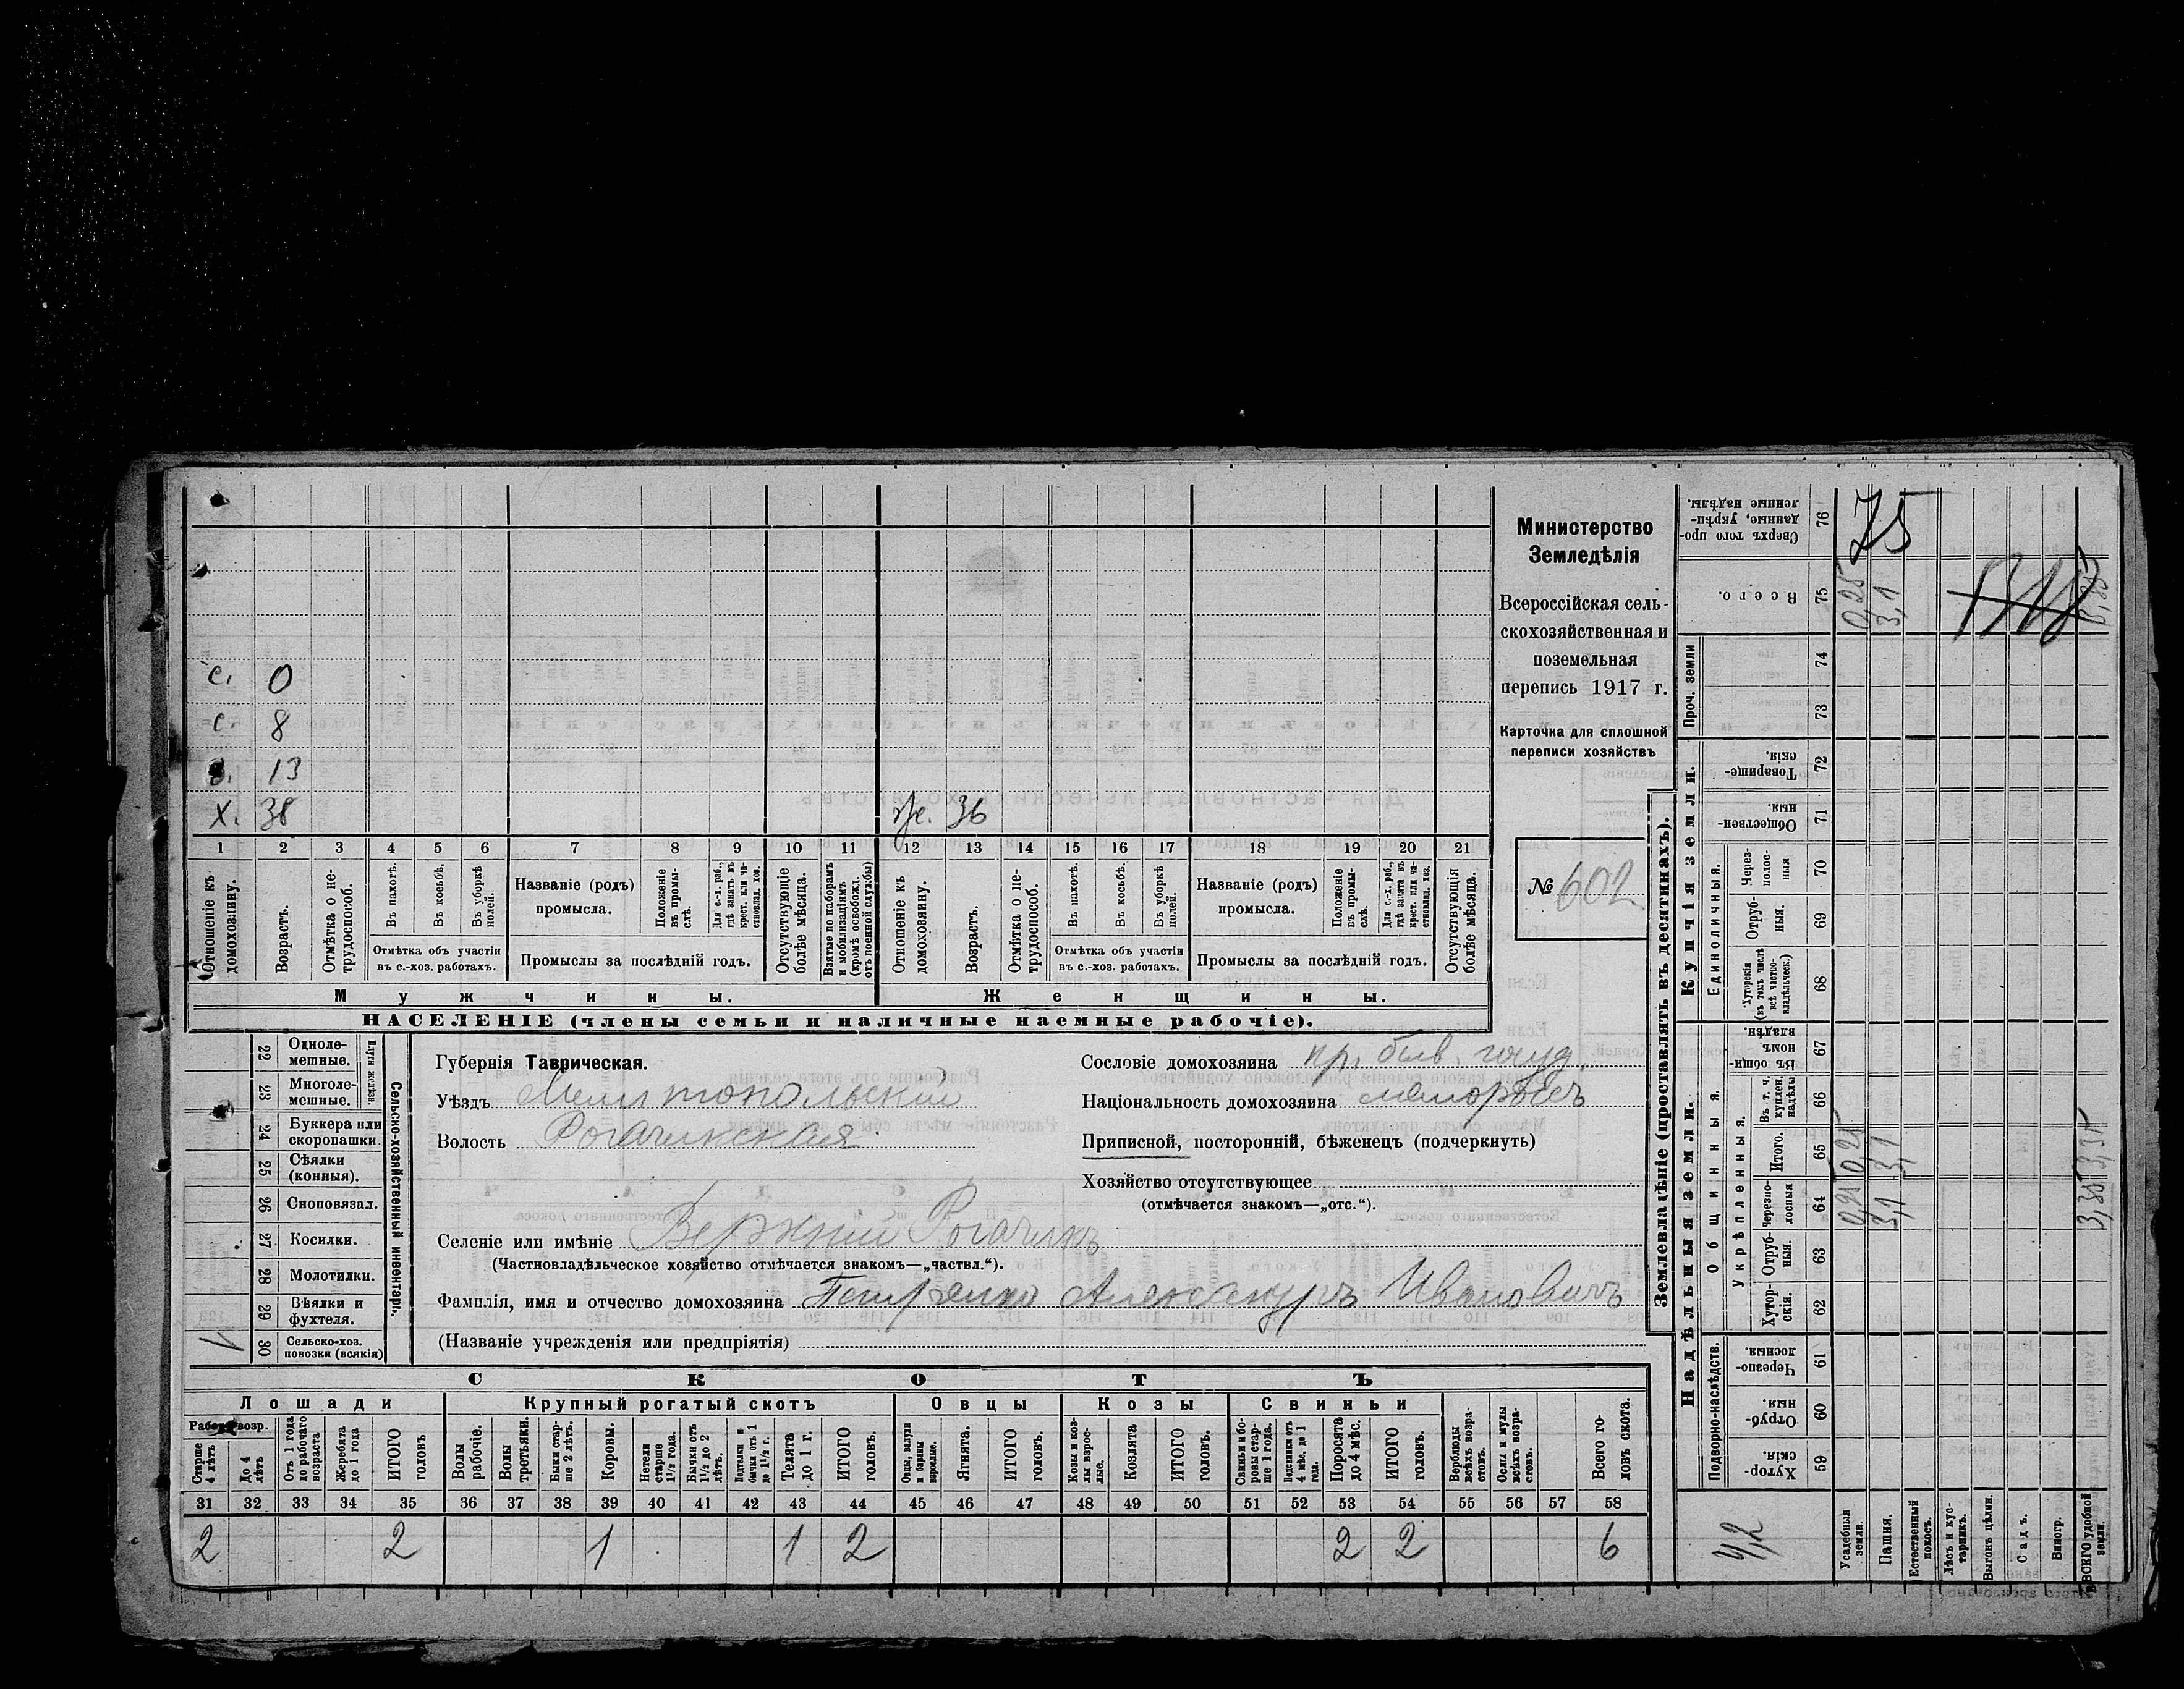 с. 0
с. 8
с. 13
х. 38
ж. 36
1 2 3 4 5 6 7 8 9 10 11 12 13 14 15 16 17 18 19 20 21
Отношеніе къ домохозяину.
Возрастъ.
Отмѣтка о нетрудоспособ.
Въ пахотѣ.
Въ косьбѣ.
Въ уборкѣ полей.
Отмѣтка объ участіи въ с.-хоз. работахъ.
Названіе (родъ) промысла.
Положеніе въ промыслѣ.
Для с.-х. раб., гдѣ занятъ въ крест. или частновлад. хоз.
Промыслы за послѣдній годъ.
Отсутствующіе болѣе мѣсяца.
Взятые по наборамъ и мобилизаціямъ (кромѣ освобожд. отъ военной службы)
Отношеніе къ домохозяину.
Возрастъ.
Отмѣтка о нетрудоспособ.
Въ пахотѣ.
Въ косьбѣ.
Въ уборкѣ полей.
Отмѣтка объ участіи въ с.-хоз. работахъ.
Названіе (родъ) промысла.
Положеніе въ промыслѣ.
Для с.-х. раб., гдѣ занята въ крест. или частновлад. хоз.
Промыслы за послѣдній годъ.
Отсутствующія болѣе мѣсяца.
Мужчины.
Женщины.
НАСЕЛЕНІЕ (члены семьи и наличные наемные рабочіе).
Министерство
Земледѣлія
Всероссійская сель-
скохозяйственная и
поземельная
перепись 1917 г.
Карточка для сплошной
переписи хозяйствъ
№ 602
Сельско-хозяйственный инвентарь.
Плуги желѣзн.
22 Однолемешные.
23 Многолемешные.
24 Буккера или скоропашки.
25 Сѣялки (конныя).
26 Сноповязал.
27 Косилки.
28 Молотилки.
29 Вѣялки и фухтеля.
30 Сельско-хоз. повозки (всякія)
Губернія Таврическая.
Уѣздъ Мелитопольскій
Волость Рогачикская
Сословіе домохозяина кр. быв. госуд.
Національность домохозяина малороссъ
Приписной, посторонній, бѣженецъ (подчеркнуть)
Хозяйство отсутствующее
(отмѣчается знакомъ—„отс.“).
Селеніе или имѣніе Верхній Рогачикъ
(Частновладѣльческое хозяйство отмѣчается знакомъ—„частвл.“).
Фамилія, имя и отчество домохозяина Петренко Александръ Ивановичъ
(Названіе учрежденія или предпріятія)
СКОТЪ
Лошади
Крупный рогатый скотъ
Овцы
Козы
Свиньи
Рабоч. возр.
Старше 4 лѣтъ
До 4 лѣтъ
Отъ 1 года до рабочаго возраста
Жеребята до 1 года
ИТОГО головъ
Волы рабочіе.
Волы третьяки.
Быки старше 2 лѣтъ.
Коровы.
Нетели старше 1½ года.
Бычки отъ 1½ до 2 лѣтъ.
Подтелки и бычки отъ 1 до 1½ г.
Телята до 1 г.
ИТОГО головъ.
Овцы, валухи и бараны взрослые.
Ягнята.
ИТОГО головъ.
Козы и козлы взрослые.
Козлята
ИТОГО головъ.
Свиньи и боровы старше 1 года.
Подсвинки отъ 4 мѣс. до 1 года.
Поросята до 4 мѣс.
ИТОГО головъ.
Верблюды всѣхъ возрастовъ.
Ослы и мулы всѣхъ возрастовъ.
Всего головъ скота.
31 32 33 34 35 36 37 38 39 40 41 42 43 44 45 46 47 48 49 50 51 52 53 54 55 56 57 58
2 2 1 1 2 2 2 6
Землевладѣніе (проставлять въ десятинахъ).
Надѣльныя земли.
Купчія земли.
Проч. земли
Подворно-наслѣдств.
Общинныя.
Укрѣпленныя.
Единоличныя.
76 Сверхъ того проданные, укрѣпленные надѣлы.
75 Всего.
74
73
72 Товарищескія.
71 Общественныя.
70 Черезполосныя
69 Отрубныя.
68 Хуторскія (въ томъ числѣ всѣ частновладѣльческ.)
67 Въ общинномъ владѣн.
66 Въ т. ч. куплен. надѣлы
65 Итого.
64 Черезполосныя
63 Отрубныя.
62 Хуторскія.
61 Черезполосныя.
60 Отрубныя.
59 Хуторскія.
75
0,25 3,1
0,25 3,1 3,35
0,25 3,1 3,35
Усадебныя земли.
Пашня.
Естественный покосъ.
Лѣсъ и кустарникъ.
Выгонъ цѣлин.
Садъ.
Виногр.
ВСЕГО удобной земли.